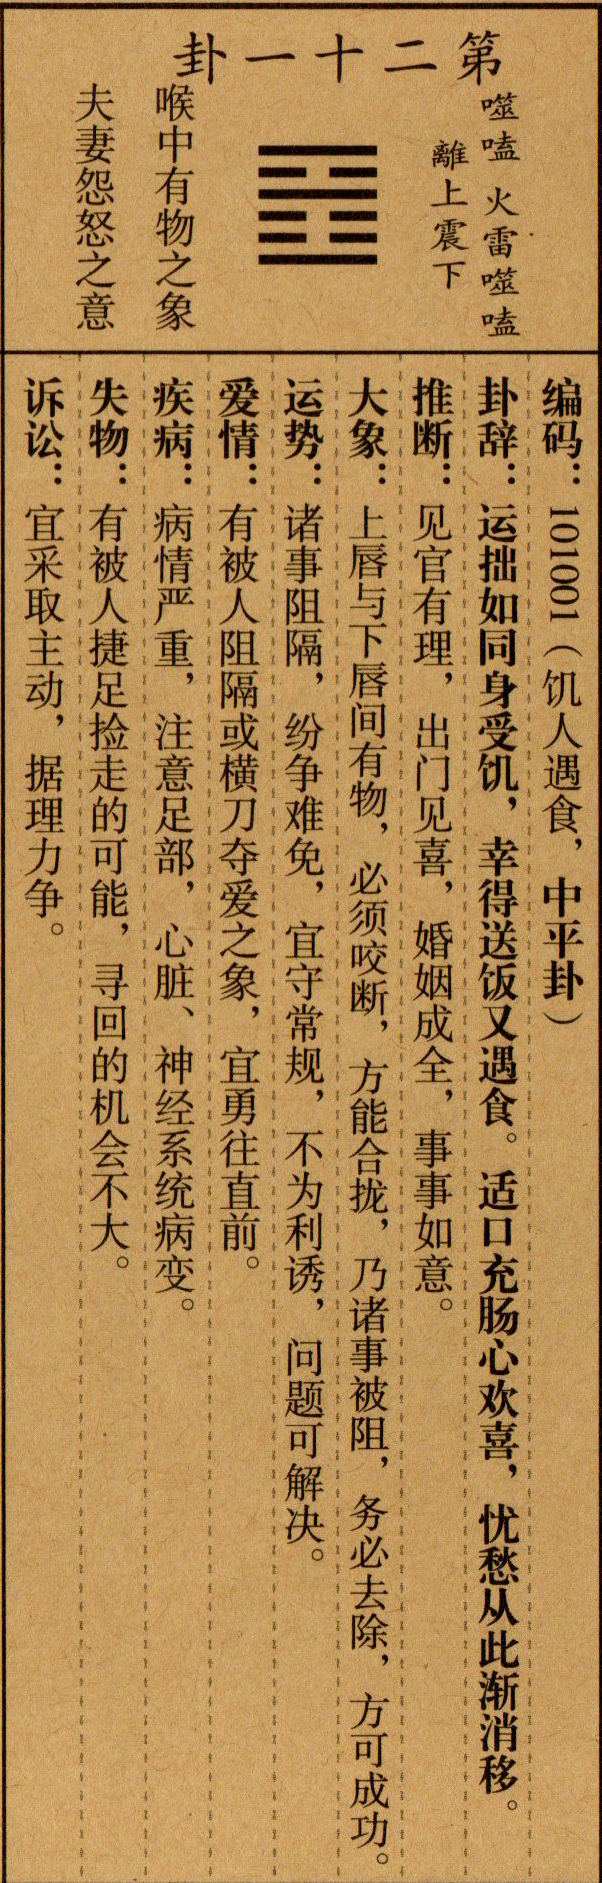 第二十一卦
噬嗑 火雷噬嗑
離上震下
喉中有物之象
夫妻怨怒之意
编码：101001（饥人遇食，中平卦）
卦辞：运拙如同身受饥，幸得送饭又遇食。适口充肠心欢喜，忧愁从此渐消移。
推断：见官有理，出门见喜，婚姻成全，事事如意。
大象：上唇与下唇间有物，必须咬断，方能合拢，乃诸事被阻，务必去除，方可成功。
运势：诸事阻隔，纷争难免，宜守常规，不为利诱，问题可解决。
爱情：有被人阻隔或横刀夺爱之象，宜勇往直前。
疾病：病情严重，注意足部，心脏、神经系统病变。
失物：有被人捷足捡走的可能，寻回的机会不大。
诉讼：宜采取主动，据理力争。